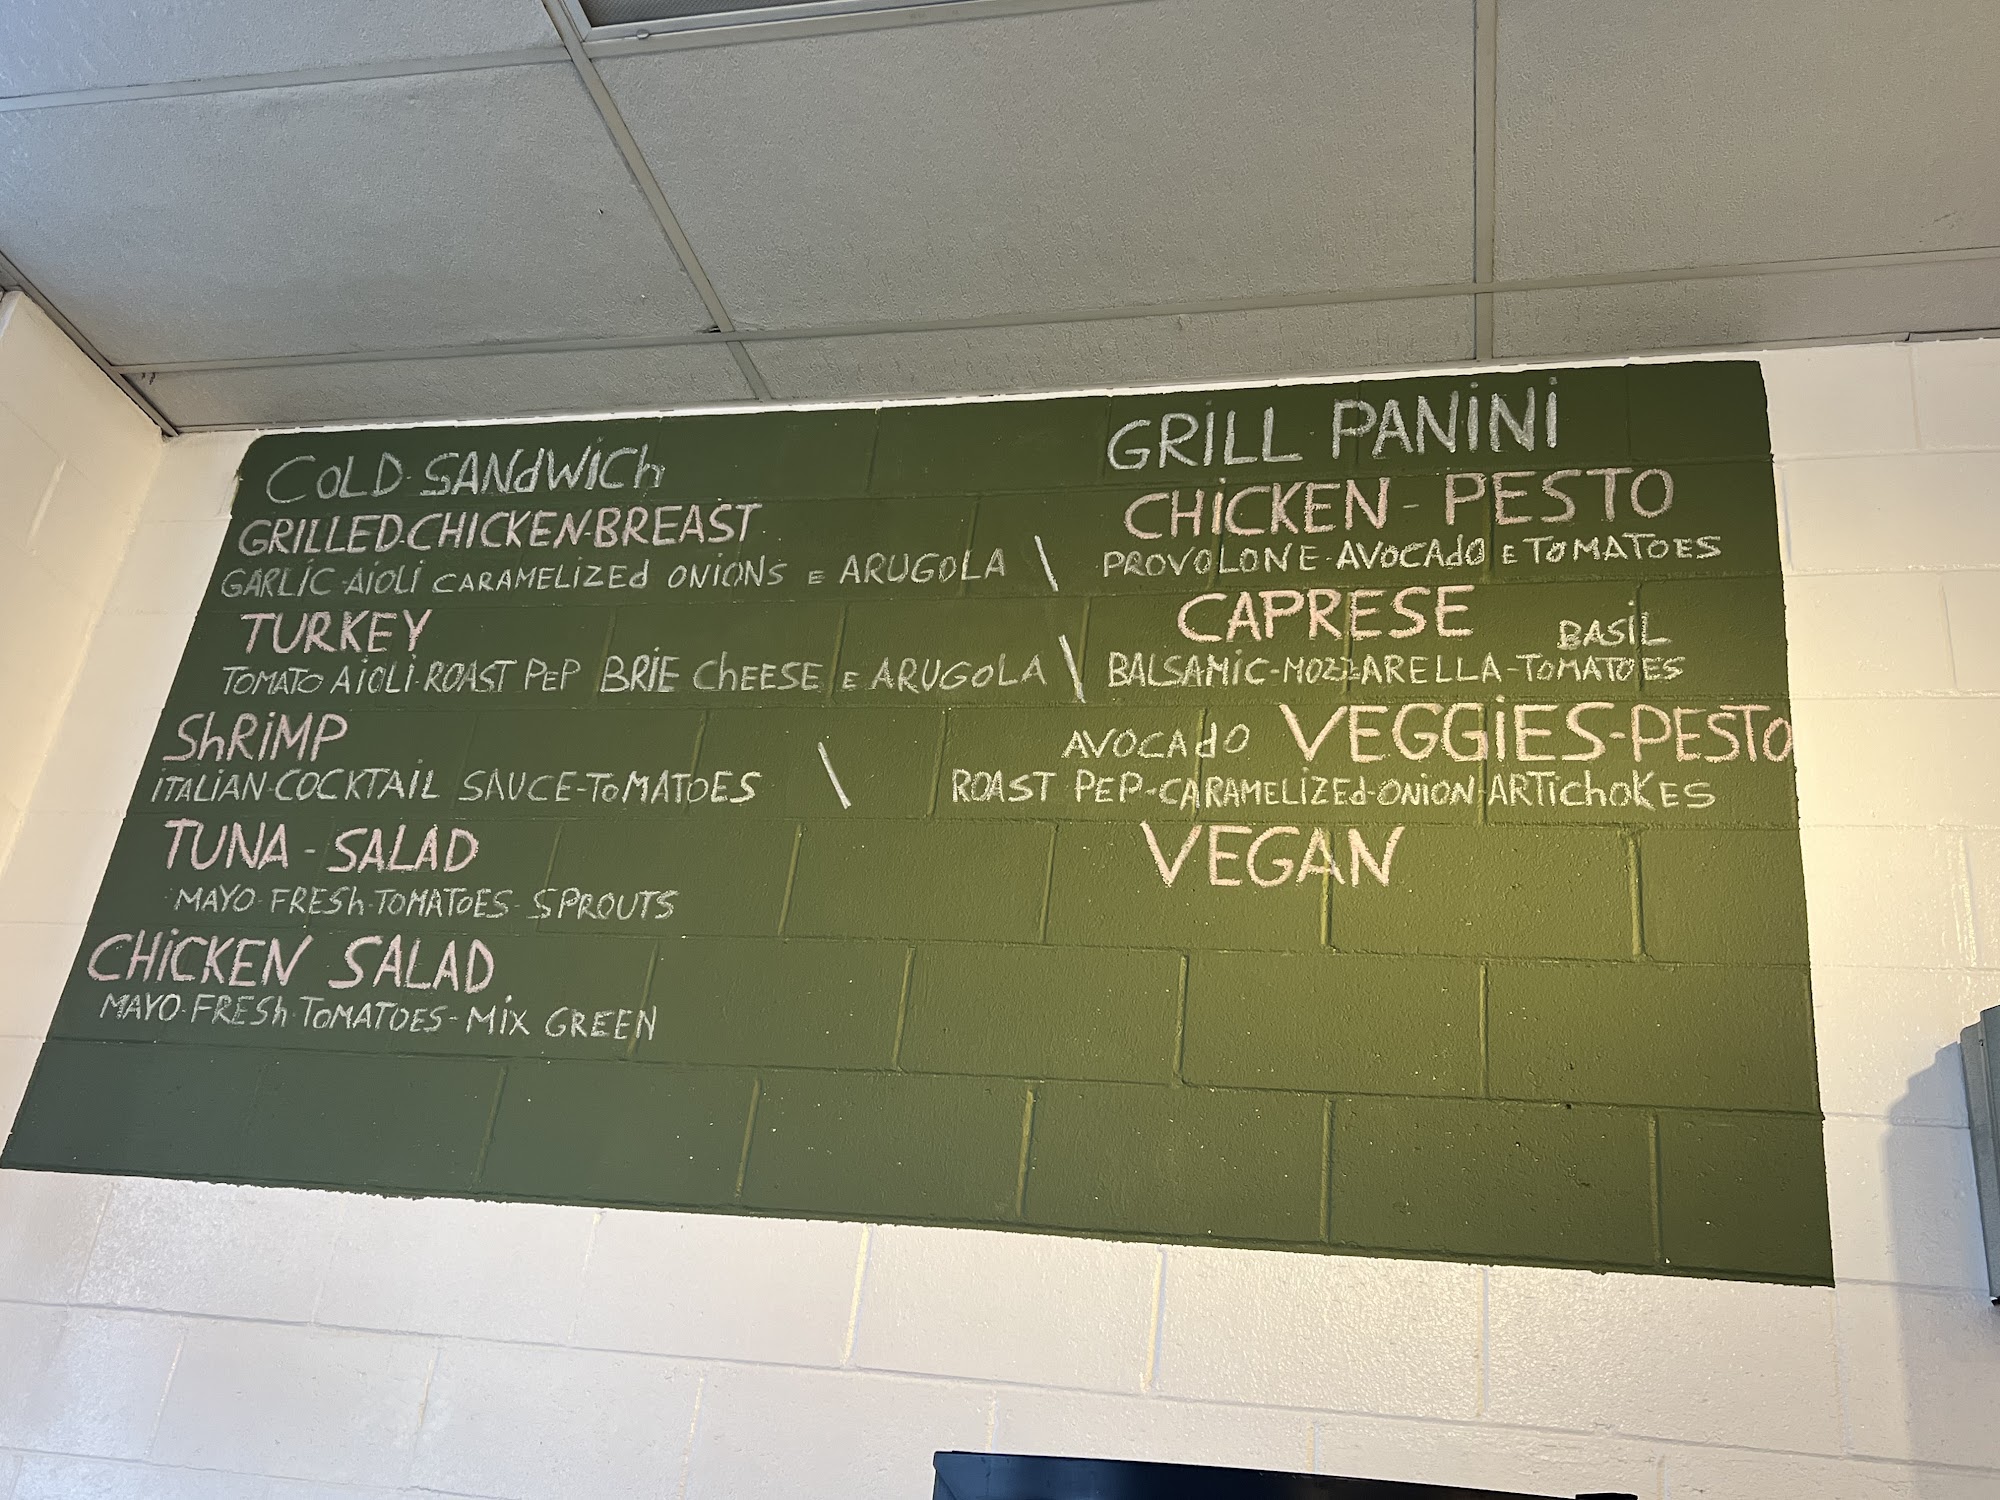 COLD-SANdWiCh
GRiLLED-CHiCKEN-BREAST
GARLiC-AiOLi CARAMELiZEd ONiONS E ARUGOLA \
TURKEY
TOMATO AiOLi-ROAST PEP BRiE ChEESE E ARUGOLA \
ShRiMP
iTALiAN-COCKTAiL SAUCE-TOMATOES \
TUNA-SALAD
MAYO-FRESh-TOMATOES-SPROUTS
CHiCKEN SALAD
MAYO-FRESh-TOMATOES-MiX GREEN
GRiLL PANiNi
CHiCKEN-PESTO
PROVOLONE-AVOCAdO E TOMATOES
CAPRESE
BASiL
BALSAMiC-MOZZARELLA-TOMATOES
AVOCAdO VEGGiES-PESTO
ROAST PEP-CARAMELiZEd-ONiON-ARTichOKES
VEGAN